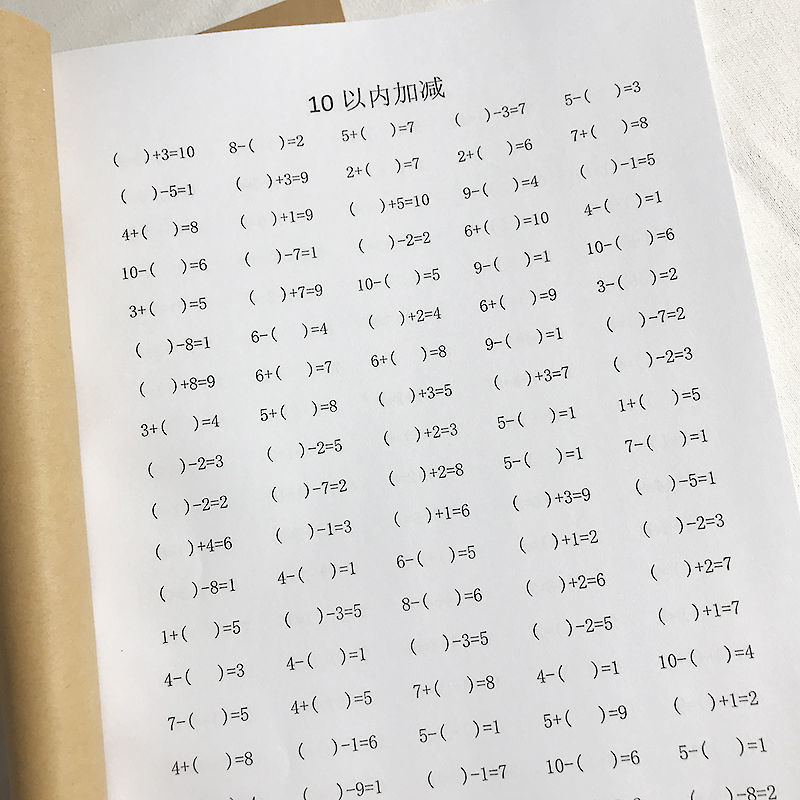 10 以内加减
(  )+3=10 8-(  )=2 5+(  )=7 (  )-3=7 5-(  )=3
(  )-5=1 (  )+3=9 2+(  )=7 2+(  )=6 7+(  )=8
4+(  )=8 (  )+1=9 (  )+5=10 9-(  )=4 (  )-1=5
10-(  )=6 (  )-7=1 (  )-2=2 6+(  )=10 4-(  )=1
3+(  )=5 (  )+7=9 10-(  )=5 9-(  )=1 10-(  )=6
(  )-8=1 6-(  )=4 (  )+2=4 6+(  )=9 3-(  )=2
(  )+8=9 6+(  )=7 6+(  )=8 9-(  )=1 (  )-7=2
3+(  )=4 5+(  )=8 (  )+3=5 (  )+3=7 (  )-2=3
(  )-2=3 (  )-2=5 (  )+2=3 5-(  )=1 1+(  )=5
(  )-2=2 (  )-7=2 (  )+2=8 5-(  )=1 7-(  )=1
(  )+4=6 (  )-1=3 (  )+1=6 (  )+3=9 (  )-5=1
(  )-8=1 4-(  )=1 6-(  )=5 (  )+1=2 (  )-2=3
1+(  )=5 (  )-3=5 8-(  )=6 (  )+2=6 (  )+2=7
4-(  )=3 4-(  )=1 (  )-3=5 (  )-2=5 (  )+1=7
7-(  )=5 4+(  )=5 7+(  )=8 4-(  )=1 10-(  )=4
4+(  )=8 (  )-1=6 5-(  )=1 5+(  )=9 (  )+1=2
(  )-9=1 (  )-1=7 10-(  )=6 5-(  )=1
(  )-8=2